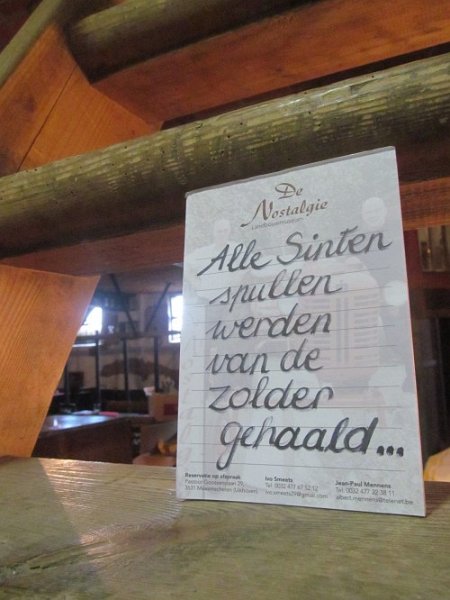 De
Nostalgie
Landbouwmuseum
Alle Sinten
spullen
werden
van de
zolder
gehaald...
Reservatie op afspraak
Ivo Smeets
Tel. 0032 477 67 52 12
ivo.smeets29@gmail.com
Jean-Paul Mennens
Tel. 0032 477 32 38 11
albert.mennens@telenet.be